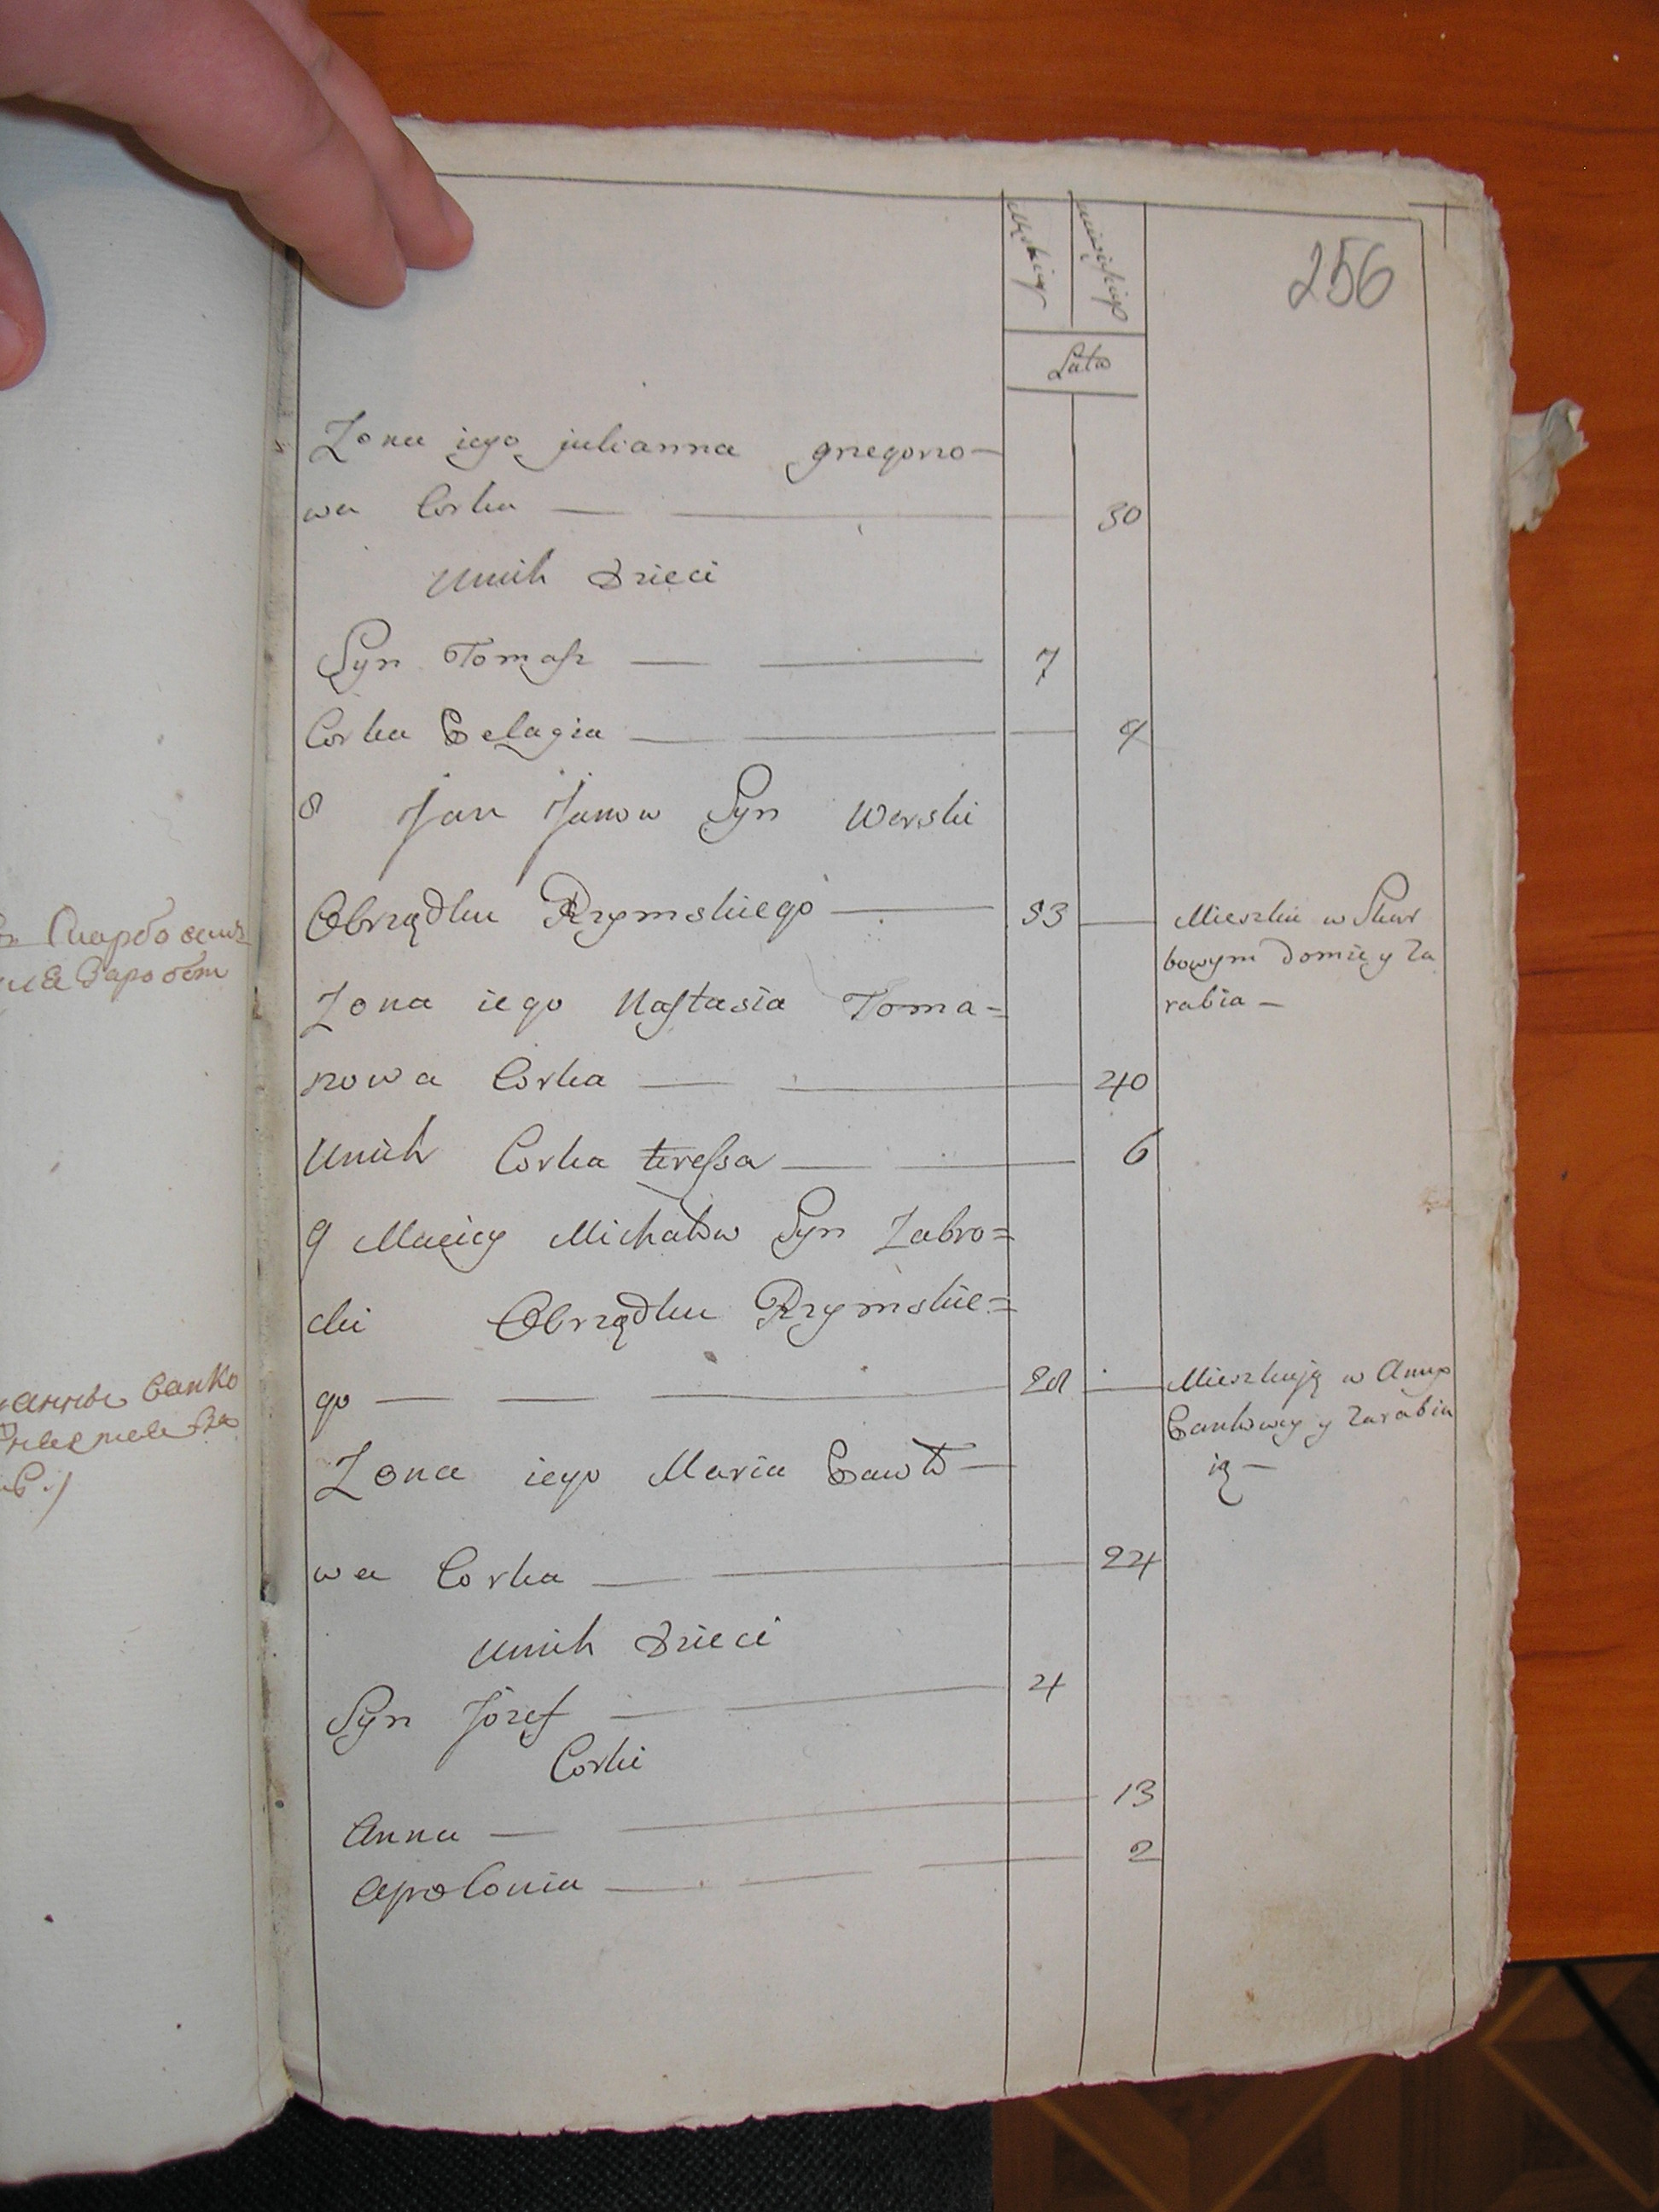 256
Lata
Zona iego julianna grzegorzo-
wa Corka — — 30
unich dzieci
Syn Tomasz — — 7
Corka Pelagia — — 4
8 Jan Janow Syn Werski
Obrządku Rzymskiego — 53 — Mieszka w Skar
bowym domie y Za
rabia —
Zona iego Nastasia Toma=
szowa Corka — — 40
Unich Corka teressa — — 6
9 Maciey Michałow Syn Zabro=
cki Obrządku Rzymskie=
go — — — 28 — Mieszkaią w
Bankowey y Zarabia
ią —
Zona iego Maria Pawło—
wa Corka — — 24
unich dzieci
Syn Józef — — 4
Corki
Anna — — 13
Apolonia — — 2